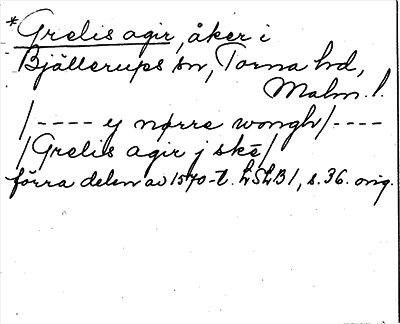 *Grelis agir, åker i
Bjällerups sn, Torna hd,
Malm. l.
/---- ej nørre wongh/----
/Grelis agir j skē/
förra delen av 1570-t. LSLB1, s. 36. orig.